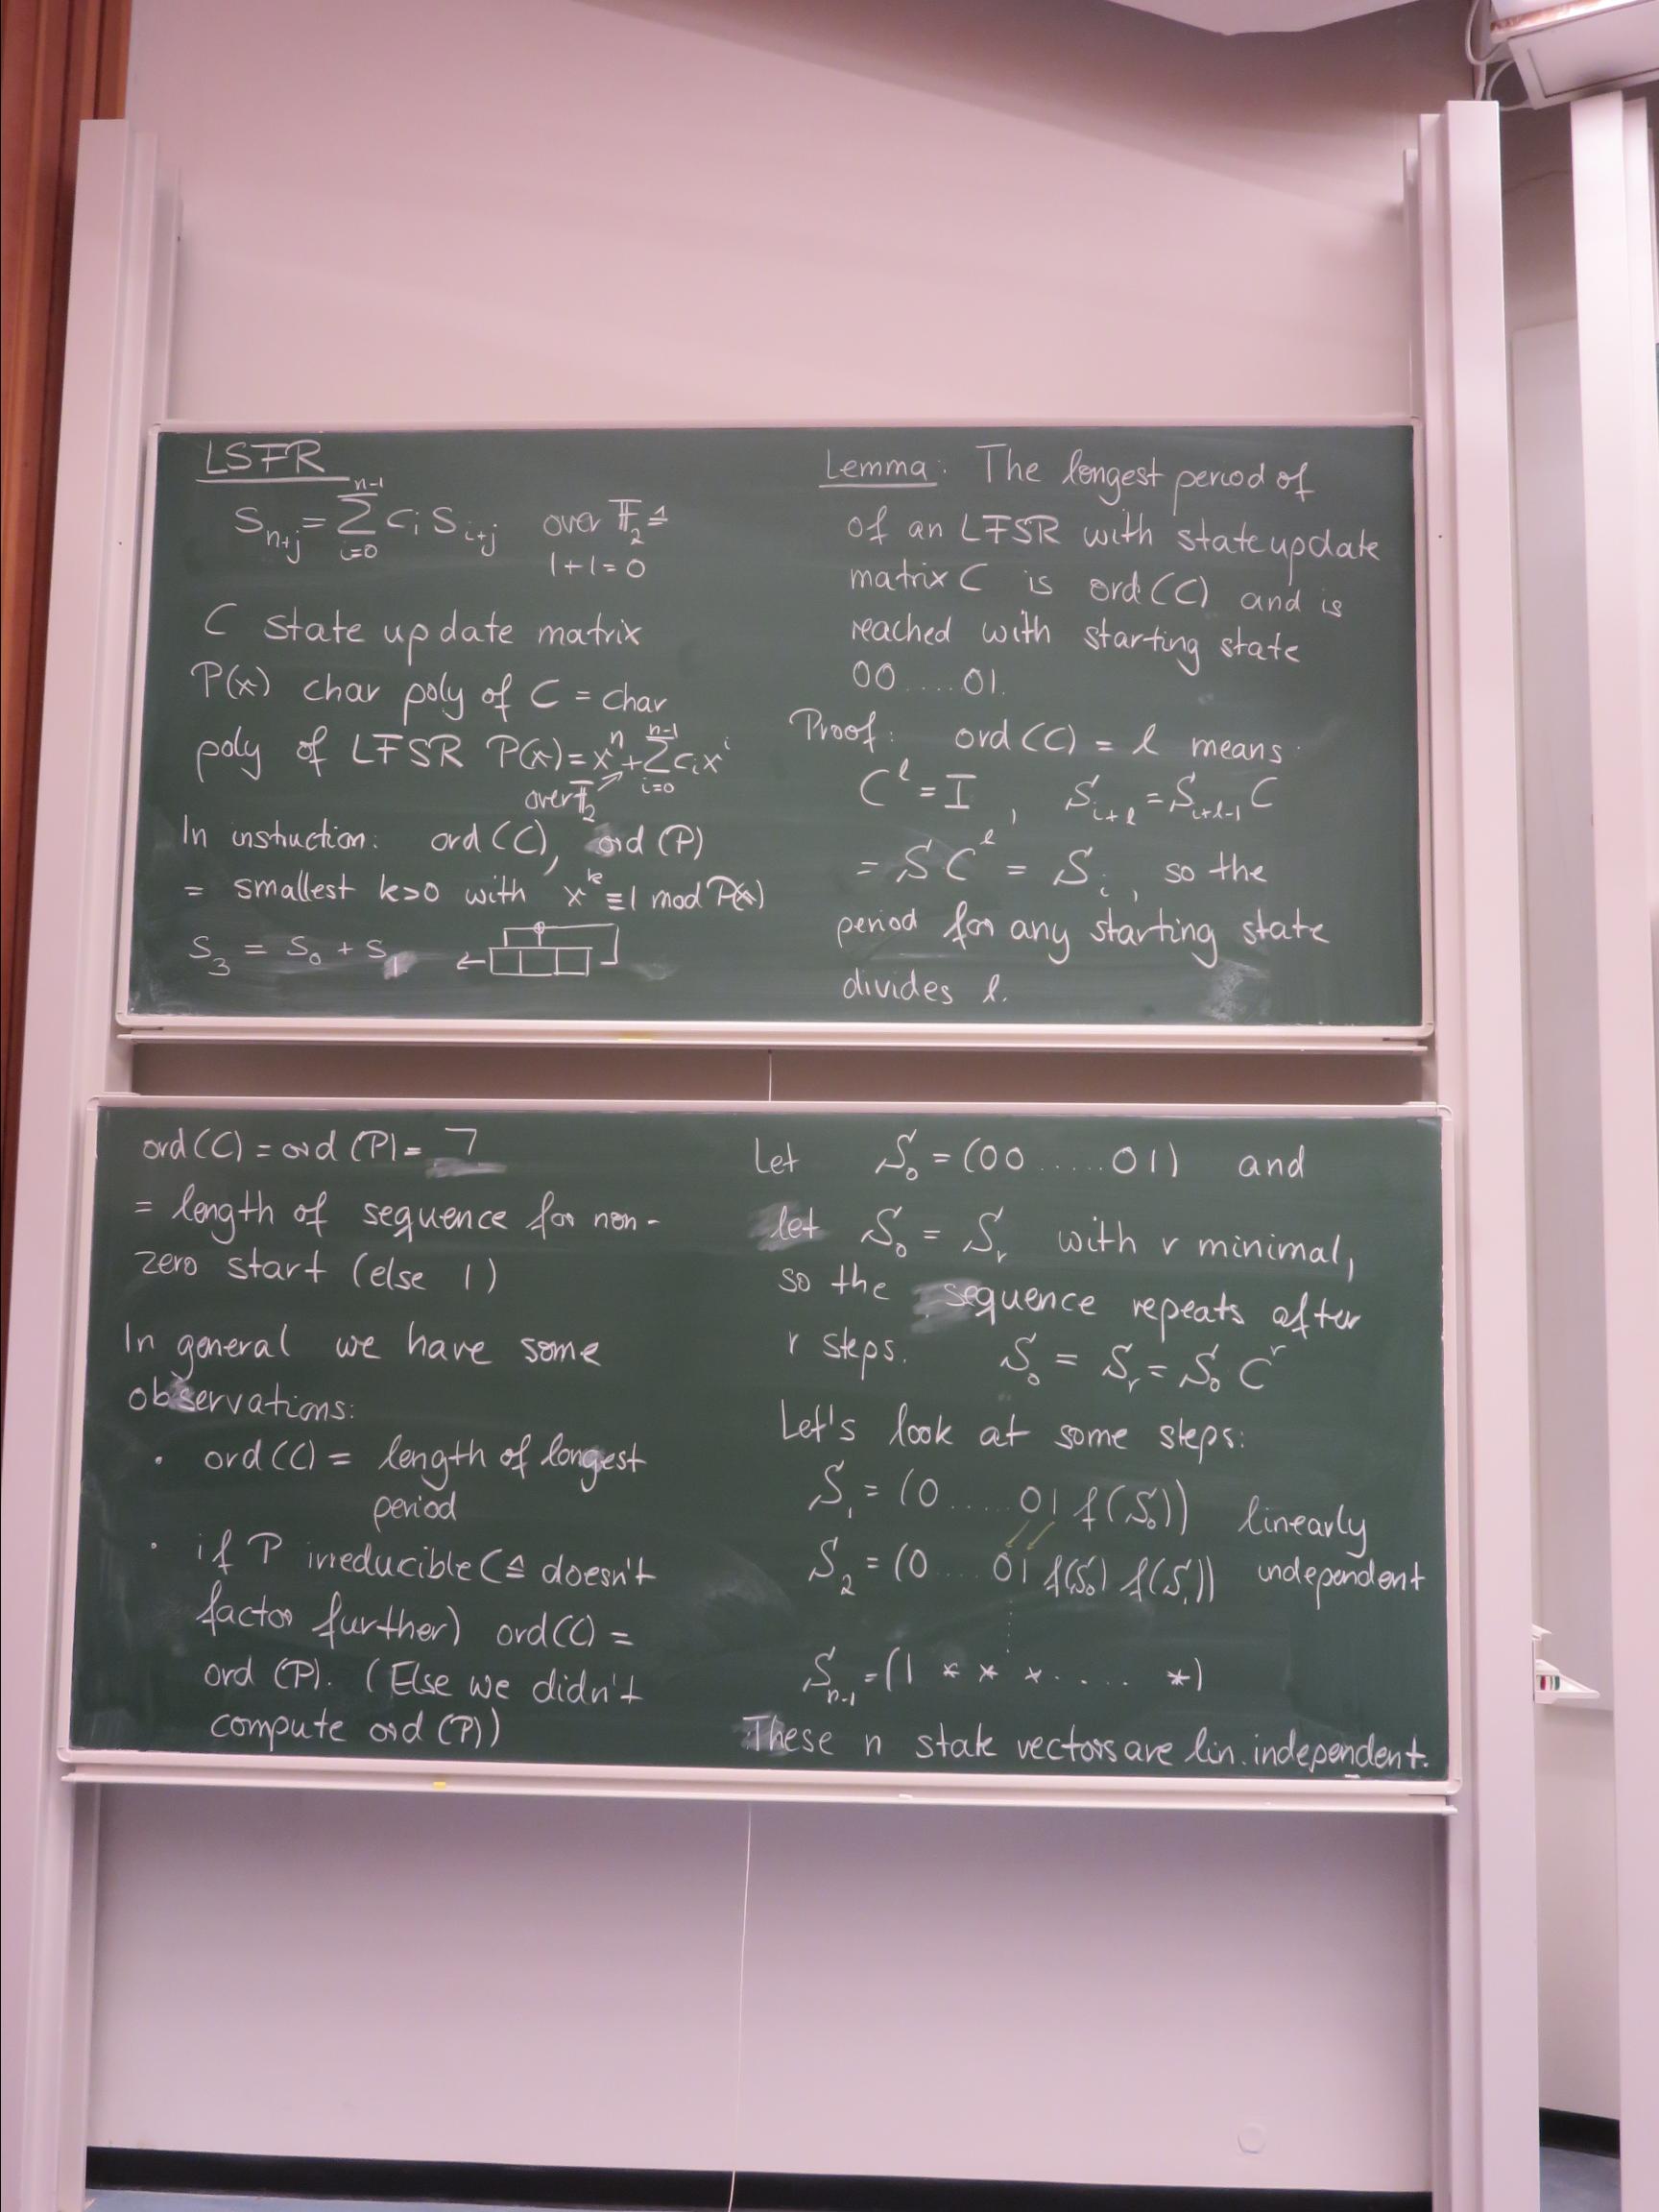 LSFR
S_{n+j} = \sum_{i=0}^{n-1} c_i S_{i+j} over F_2 ≙
1+1=0
C state update matrix
P(x) char poly of C = char
poly of LFSR P(x) = x^n + \sum_{i=0}^{n-1} c_i x^i
over F_2
In instruction: ord(C), ord(P)
= smallest k>0 with x^k ≡ 1 mod P(x)
S_3 = S_0 + S_1 ←
Lemma: The longest period of
of an LFSR with state update
matrix C is ord(C) and is
reached with starting state
00 .... 01.
Proof: ord(C) = l means
C^l = I, S_{i+l} = S_{i+l-1} C
= S C^l = S_i, so the
period for any starting state
divides l.
ord(C) = ord(P) = 7
= length of sequence for non-
zero start (else 1)
In general we have some
observations:
· ord(C) = length of longest
period
· if P irreducible (≙ doesn't
factor further) ord(C) =
ord(P). (Else we didn't
compute ord(P))
Let S_0 = (00 ..... 01) and
let S_0 = S_r with r minimal,
so the sequence repeats after
r steps. S_0 = S_r = S_0 C^r
Let's look at some steps:
S_1 = (0 ..... 01 f(S_0)) linearly
S_2 = (0 .... 01 f(S_0) f(S_1)) independent
S_{n-1} = (1 * * * . .... *)
These n state vectors are lin. independent.